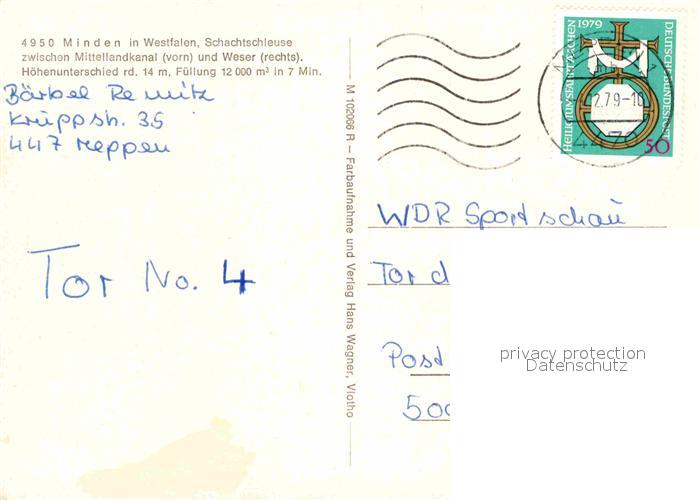 4950 Minden in Westfalen, Schachtschleuse
zwischen Mittellandkanal (vorn) und Weser (rechts).
Höhenunterschied rd. 14 m, Füllung 12 000 m³ in 7 Min.
Bärbel Remitz
Kruppstr. 35
447 Meppen
Tor No. 4
M 102066 R – Farbaufnahme und Verlag Hans Wagner, Vlotho
HEILIGTUMSFAHRT AACHEN 1979
DEUTSCHE BUNDESPOST
50
2.79-10
WDR Sportschau
Tor d
Post
500
privacy protection
Datenschutz